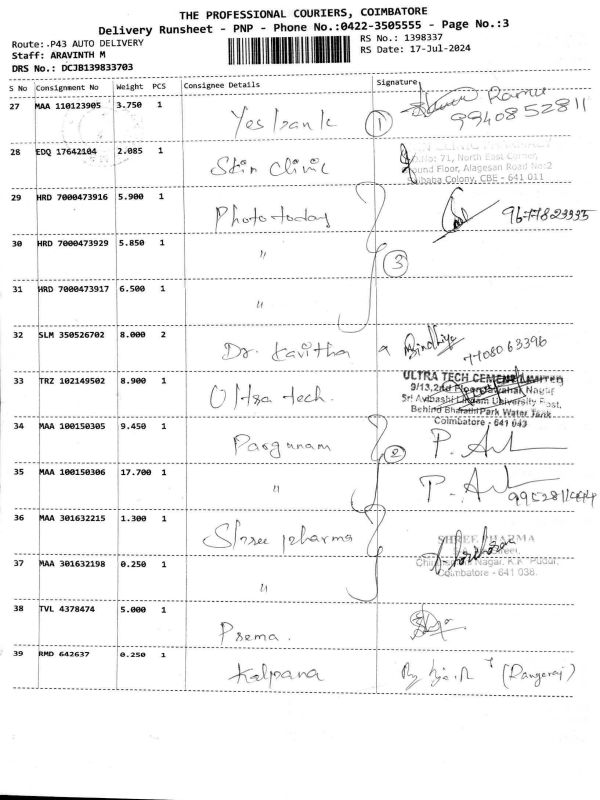 THE PROFESSIONAL COURIERS, COIMBATORE
Delivery Runsheet - PNP - Phone No.:0422-3505555 - Page No.:3
Route:.P43 AUTO DELIVERY
RS No.: 1398337
Staff: ARAVINTH M
RS Date: 17-Jul-2024
DRS No.: DCJB139833703
S No Consignment No Weight PCS Consignee Details Signature
27 MAA 110123905 3.750 1 Yes bank 1 Ramu
9940852811
28 EDQ 17642104 2.085 1 Skin clinic
No: 71, North East Corner,
Ground Floor, Alagesan Road No:2
Saibaba Colony, CBE - 641 011
29 HRD 7000473916 5.900 1 Phototoday 9677823335
30 HRD 7000473929 5.850 1 " 3
31 HRD 7000473917 6.500 1 "
32 SLM 350526702 8.000 2 Dr. Kavitha Bindhiya
7708063396
33 TRZ 102149502 8.900 1 Ultra tech.
ULTRA TECH CEMENT LIMITED
9/13, 2nd Floor, Jawahar Nagar
Sri Avinashi University Post,
Behind Bharathi Park Water Tank
Coimbatore - 641 043
34 MAA 100150305 9.450 1 Pargunam 2 P.
35 MAA 100150306 17.700 1 " P.
36 MAA 301632215 1.300 1 Shree pharma
SHREE PHARMA
Nagar, K.K Pudur,
Coimbatore - 641 038.
37 MAA 301632198 0.250 1 "
38 TVL 4378474 5.000 1 Prema.
39 RMD 642637 0.250 1 Kalpana (Rangaraj)